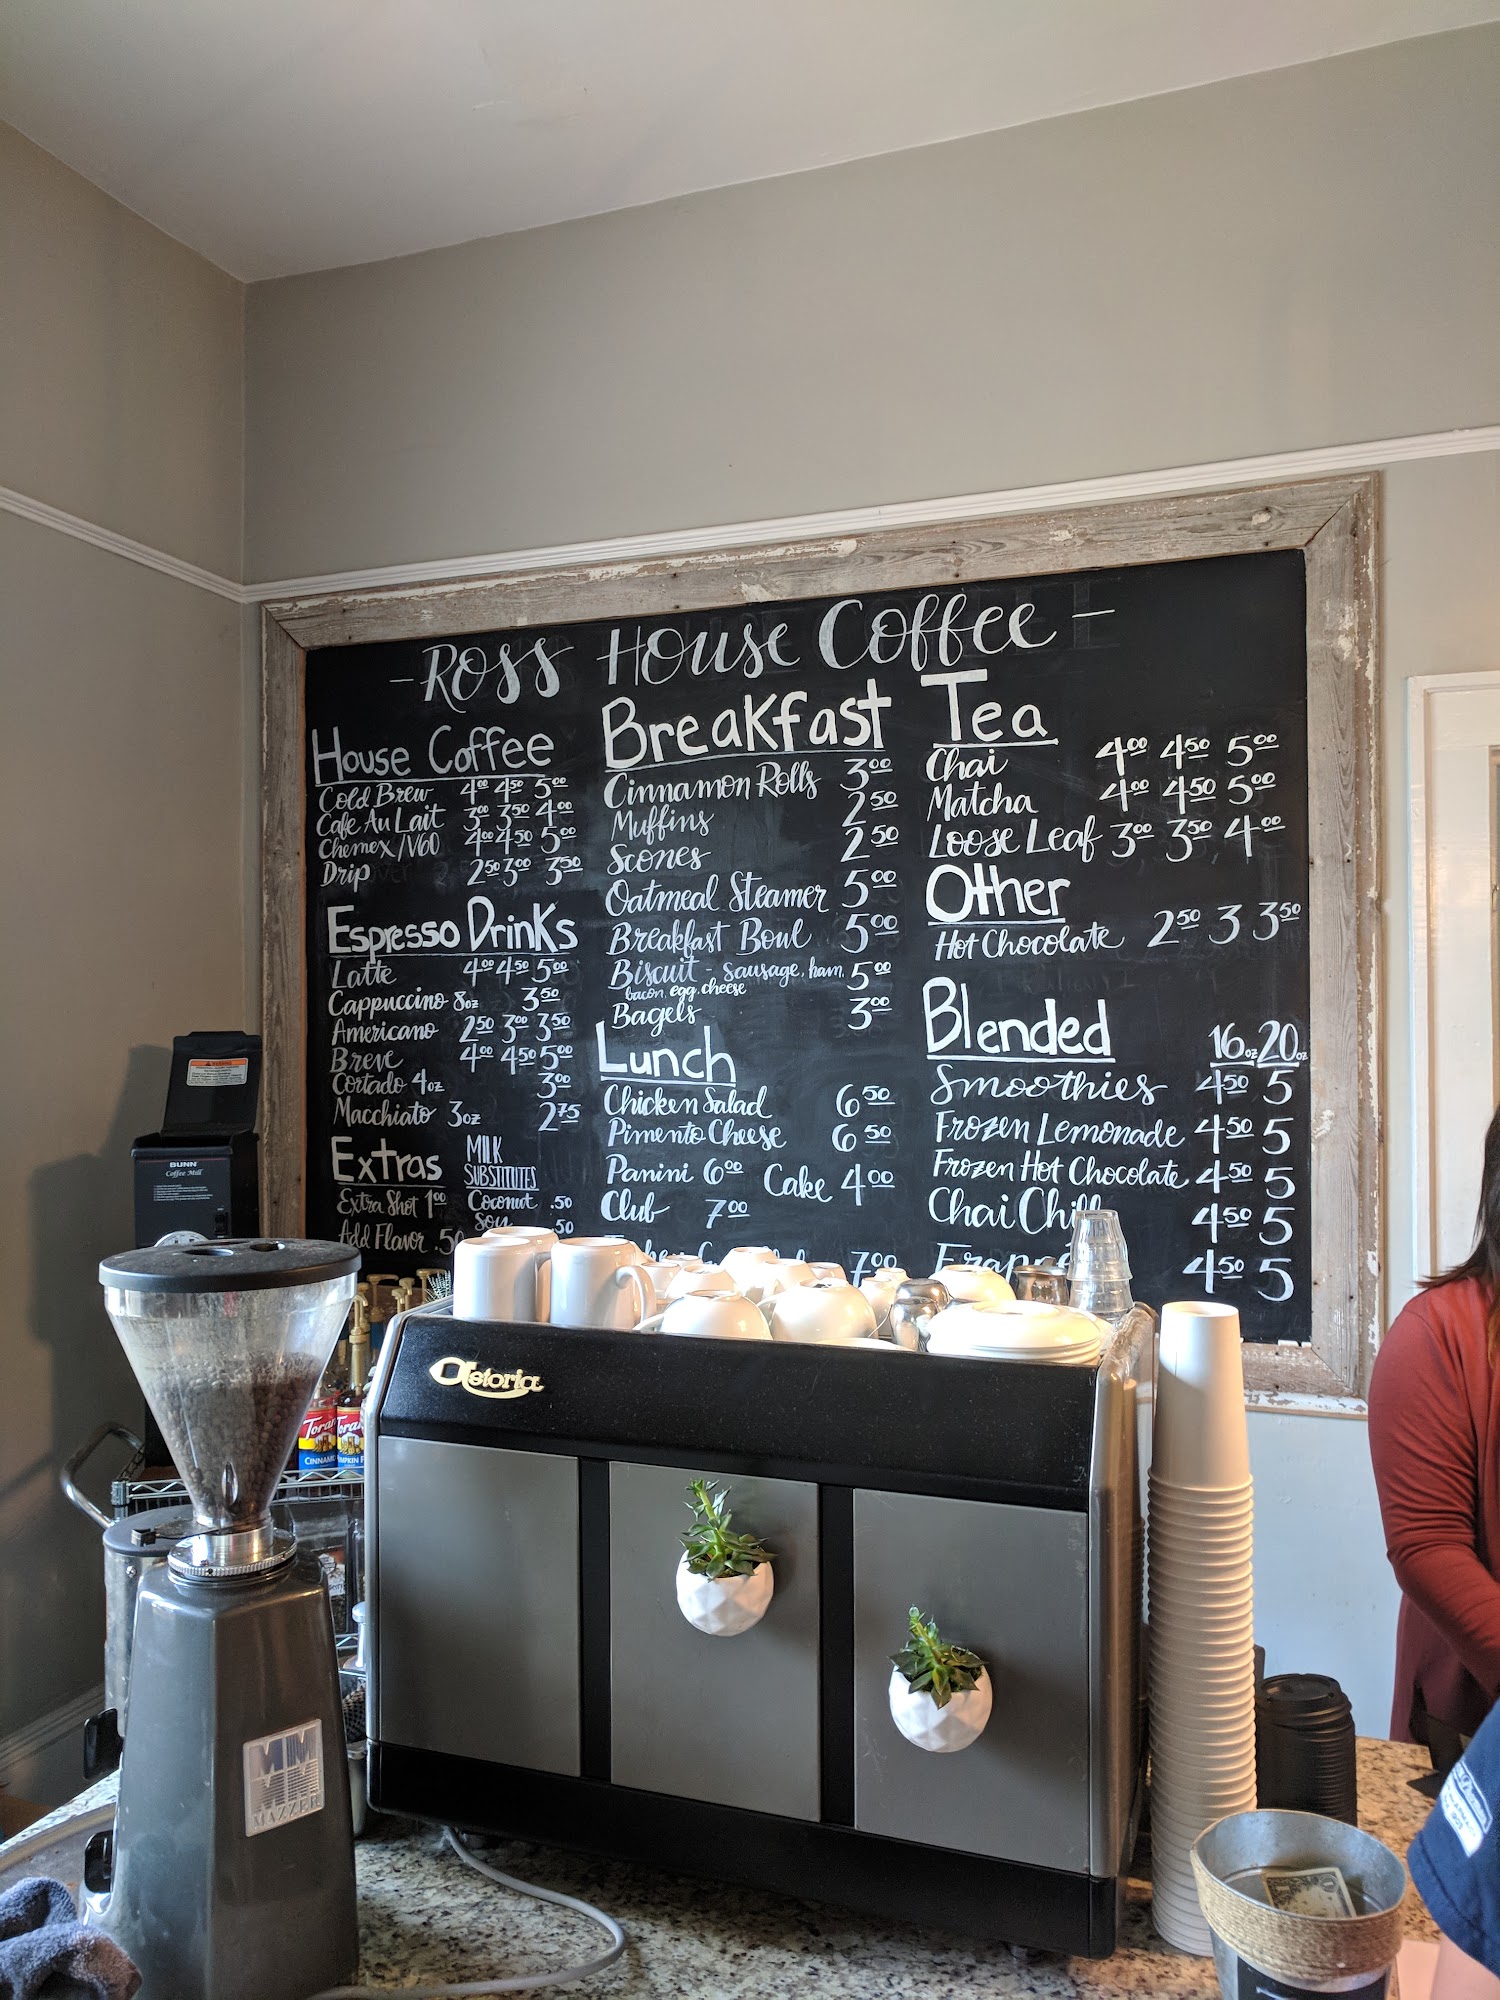 - Ross House Coffee -
House Coffee
Cold Brew 4.00 4.50 5.00
Cafe Au Lait 3.00 3.50 4.00
Chemex/V60 4.00 4.50 5.00
Drip 2.50 3.00 3.50
Espresso Drinks
Latte 4.00 4.50 5.00
Cappuccino 8oz 3.50
Americano 2.50 3.00 3.50
Breve 4.00 4.50 5.00
Cortado 4oz 3.00
Macchiato 3oz 2.75
Extras
Extra Shot 1.00
Add Flavor .50
MILK
SUBSTITUTES
Coconut .50
Soy .50
Breakfast
Cinnamon Rolls 3.00
Muffins 2.50
Scones 2.50
Oatmeal Steamer 5.00
Breakfast Bowl 5.00
Biscuit - sausage, ham, 5.00
bacon, egg, cheese
Bagels 3.00
Lunch
Chicken Salad 6.50
Pimento Cheese 6.50
Panini 6.00 Cake 4.00
Club 7.00
7.00
Tea
Chai 4.00 4.50 5.00
Matcha 4.00 4.50 5.00
Loose Leaf 3.00 3.50 4.00
Other
Hot Chocolate 2.50 3 3.50
Blended 16oz 20oz
Smoothies 4.50 5
Frozen Lemonade 4.50 5
Frozen Hot Chocolate 4.50 5
Chai Chill 4.50 5
4.50 5
BUNN
Coffee Mill
Astoria
Torani
CINNAMON
MAZZER